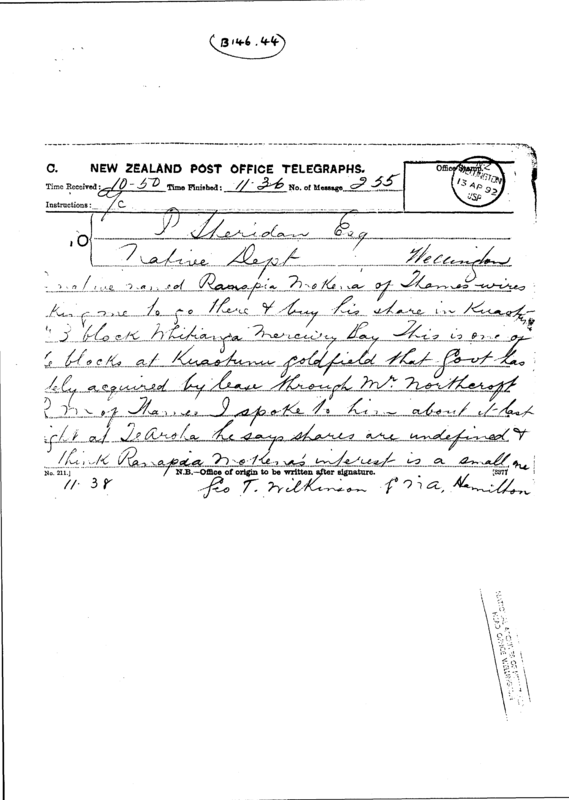 (B146.44)
C. NEW ZEALAND POST OFFICE TELEGRAPHS.
Office Stamp.
WELLINGTON
13 AP 92
Time Received: 10-50 Time Finished: 11.36 No. of Message 255
Instructions:
O
P Sheridan Esq
Native Dept Wellington
native named Ranapia Mokena of Thames wires
king me to go there & buy his share in Kuaotunu
3 block Whitianga Mercury Bay This is one of
blocks at Kuaotunu goldfield that Govt has
ely acquired by lease through Mr Northcroft
M of Thames I spoke to him about it last
ght at TeAroha he says shares are undefined &
think Ranapia Mokena's interest is a small one
No. 211.] N.B.—Office of origin to be written after signature.
11.38 Geo T. Wilkinson Hamilton
HEAD OFFICE WELLINGTON